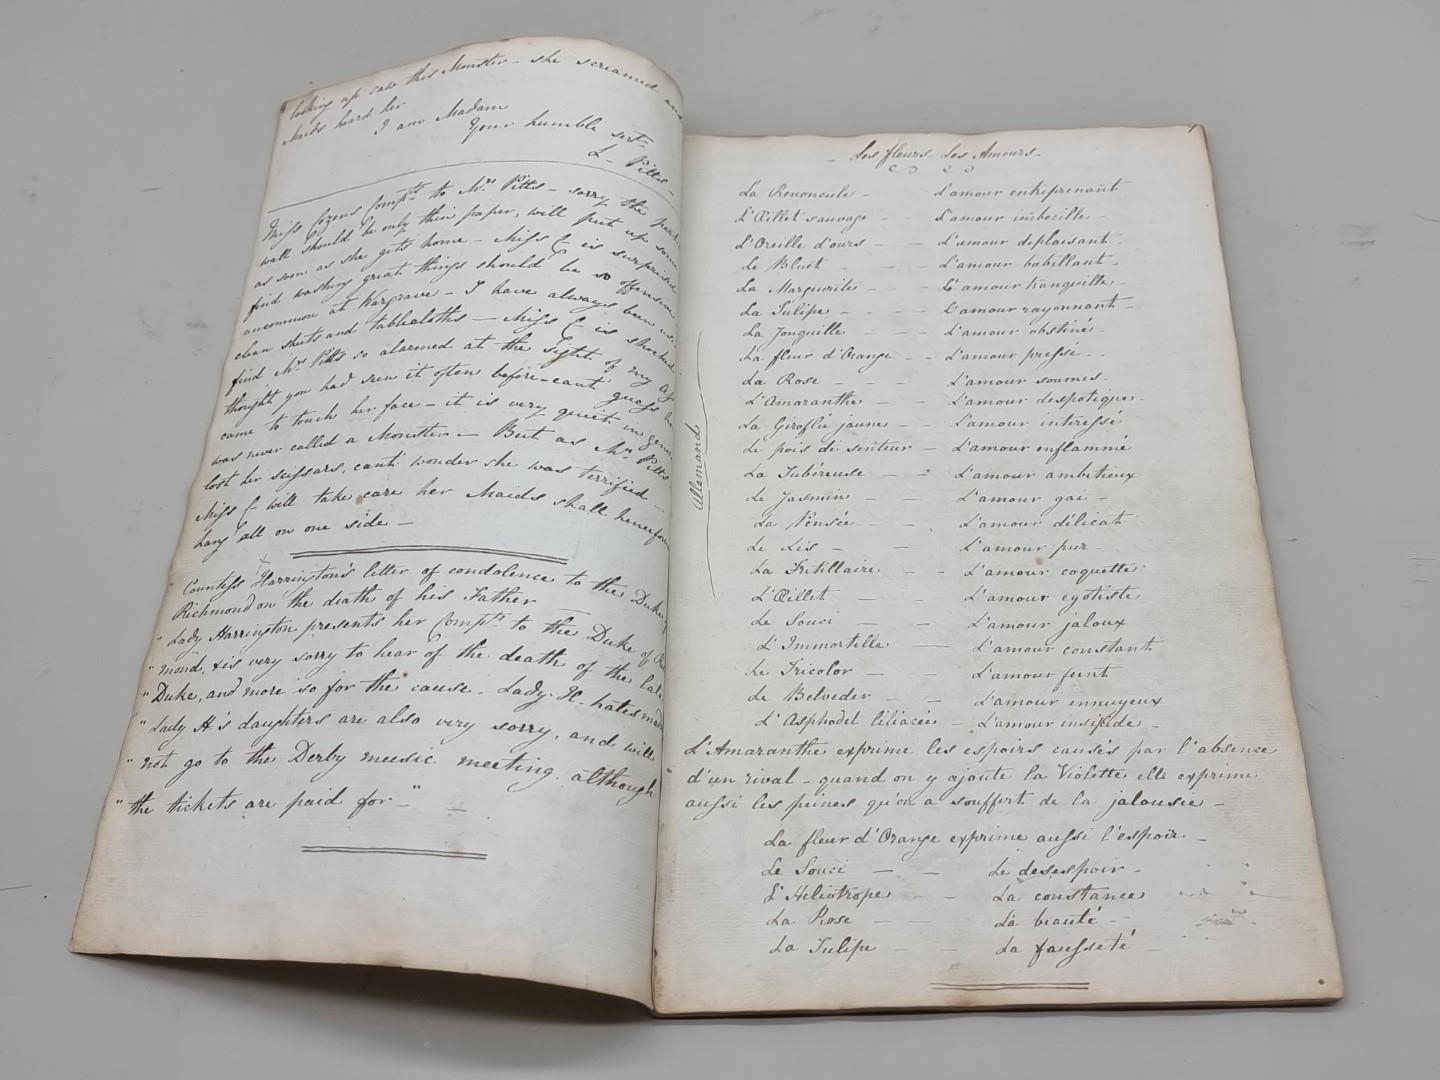 looking up saw this Monster - she screamed and
Maids heard her
I am Madam
Your humble sert-
L- Pitts-
Miss Cozens Compts to Mrs Pitts - sorry the
wall should be only thin paper, will put up some
as soon as she gets home - Miss C is surprised
find washing great things should be so offensive
uncommon at Wargrave - I have always been
clean shirts and tablecloths - Miss C is shocked
find Mrs Pitts so alarmed at the sight of my
thought you had seen it often before - cant guess
came to touch her face - it is very quiet in
was never called a Monster - But as Mrs Pitts
lost her scissars, cant wonder she was terrified -
Miss C will take care her Maids shall
hang all on one side -
Countess Harrington's letter of condolence to the Duke of
Richmond on the death of his Father -
"Lady Harrington presents her Compts to the Duke of
"mond, & is very sorry to hear of the death of the late
"Duke, and more so for the cause - Lady H. hates
"Lady H's daughters are also very sorry, and will
"not go to the Derby music meeting, although
"the tickets are paid for - "
- Les fleurs - Les Amours -
La Renoncule - L'amour entreprenant
L'Œillet sauvage - - L'amour imbecille -
L'Oreille d'ours - - L'amour deplaisant -
Le Bluet - - L'amour babillant -
La Marguerite - - L'amour tranquille -
La Tulipe - - - L'amour rayonnant -
La Jonquille - - L'amour obstiné -
La fleur d'Orange - - L'amour pressé - -
La Rose - - - L'amour soumis -
L'Amaranthe - - L'amour despotique -
La Giroflé jaune - - L'amour intéressé
Le pois de senteur - L'amour enflammé
Allemand
La Tubéreuse - - L'amour ambitieux
Le Jasmin - - L'amour gai -
La Pensée - - L'amour délicat
Le Lis - - L'amour pur -
La Fritillaire - - L'amour coquette
L'Œillet - - L'amour egotiste
Le Souci - - L'amour jaloux
L'Immortelle - L'amour constant
Le Tricolor - L'amour feint
Le Belveder - L'amour ennuyeux
L'Asphodel liliacée - L'amour insipide -
L'Amaranthe exprime les espoirs causés par l'absence
d'un rival - quand on y ajoute la Violette elle exprime
aussi les peines qu'on a souffert de la jalousie -
La fleur d'Orange exprime aussi l'espoir. -
Le Souci - - Le desespoir -
L'Heliotrope - La constance
La Rose - - La beauté -
La Tulipe - - La fausseté -